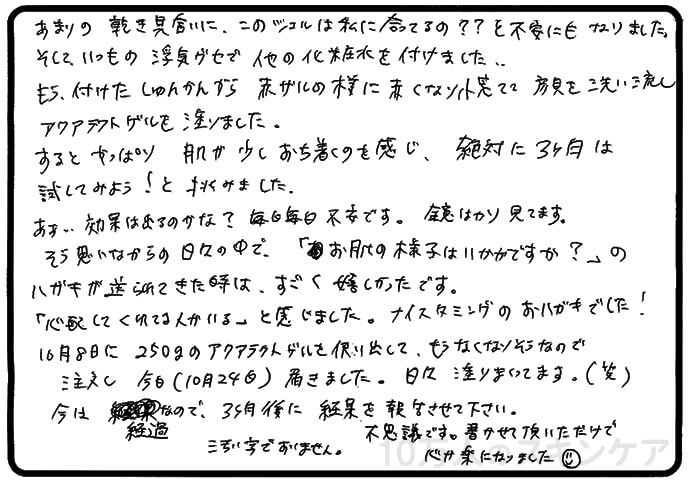 あまりの 乾き具合いに、このジェルは私に合ってるの??と不安にもなりました。
そして、いつもの 浮気グセで 他の化粧水を付けました...
もう、付けた しゅんかんから 赤ザルの様に 赤くなり、慌てて 顔を洗い流し
アクアラクトゲルを塗りました。
すると やっぱり 肌が少しおち着くのを感じ、絶対に3ヶ月は
試してみよう!と 挑みました。
あぁ... 効果は出るのかな? 毎日毎日 不安です。 鏡ばかり見てます。
そう思いながらの日々の中で、「お肌の様子はいかがですか?」の
ハガキが送られてきた時は、すごく嬉しかったです。
「心配してくれてる人がいる」と感じました。ナイスタミングのおハガキでした!
10月8日に 250gのアクアラクトゲルを使い出して、もうなくなりそうなので
注文し 今日(10月24日) 届きました。日々 塗りまくってます。(笑)
今は 経過なので、3ヶ月後に 結果を報告させて下さい。
不思議です。書かせて頂いただけで
汚い字ですいません。 心が楽になりました
10万人のスキンケア